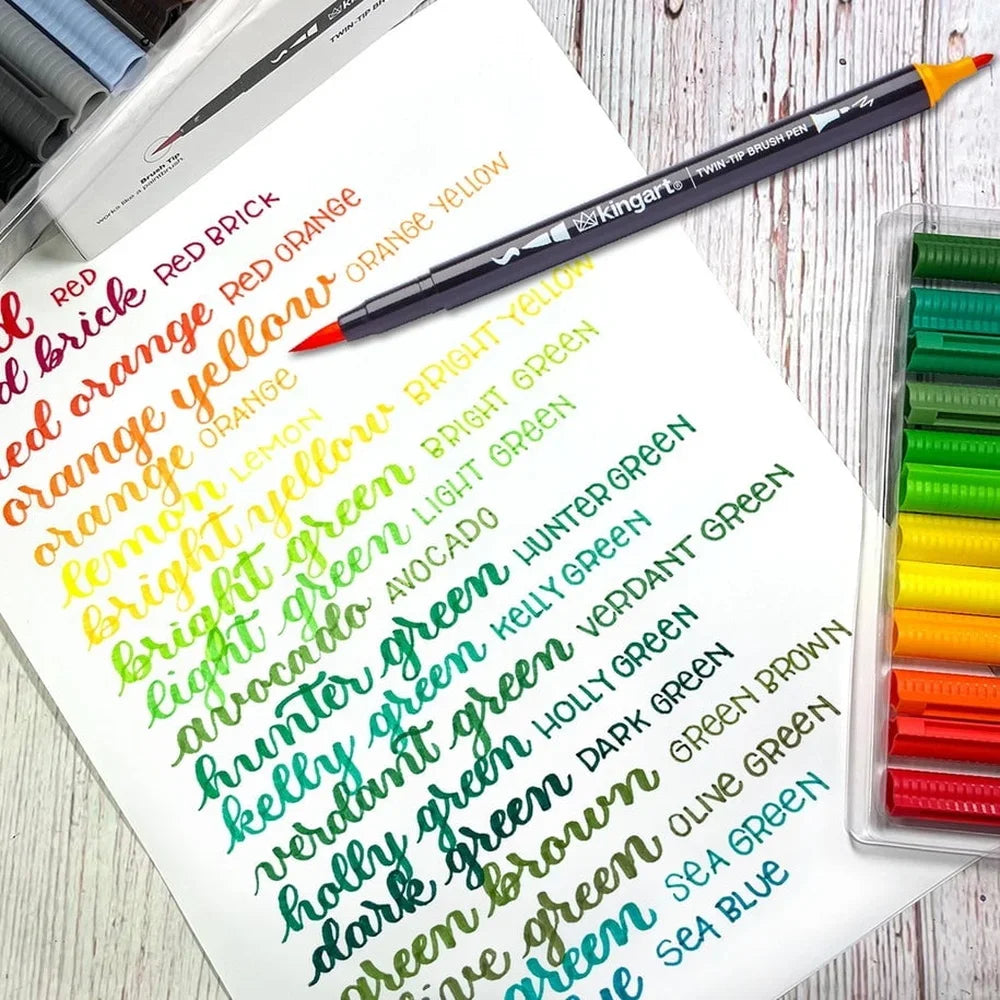 TWIN-TIP BR
Brush Tip
works like a paintbrush
kingart® | TWIN-TIP BRUSH PEN
RED
brick RED BRICK
red orange RED ORANGE
orange yellow ORANGE YELLOW
orange ORANGE
lemon LEMON
bright yellow BRIGHT YELLOW
bright green BRIGHT GREEN
light green LIGHT GREEN
avocado AVOCADO
hunter green HUNTER GREEN
kelly green KELLY GREEN
verdant green VERDANT GREEN
holly green HOLLY GREEN
dark green DARK GREEN
green brown GREEN BROWN
olive green OLIVE GREEN
green SEA GREEN
SEA BLUE